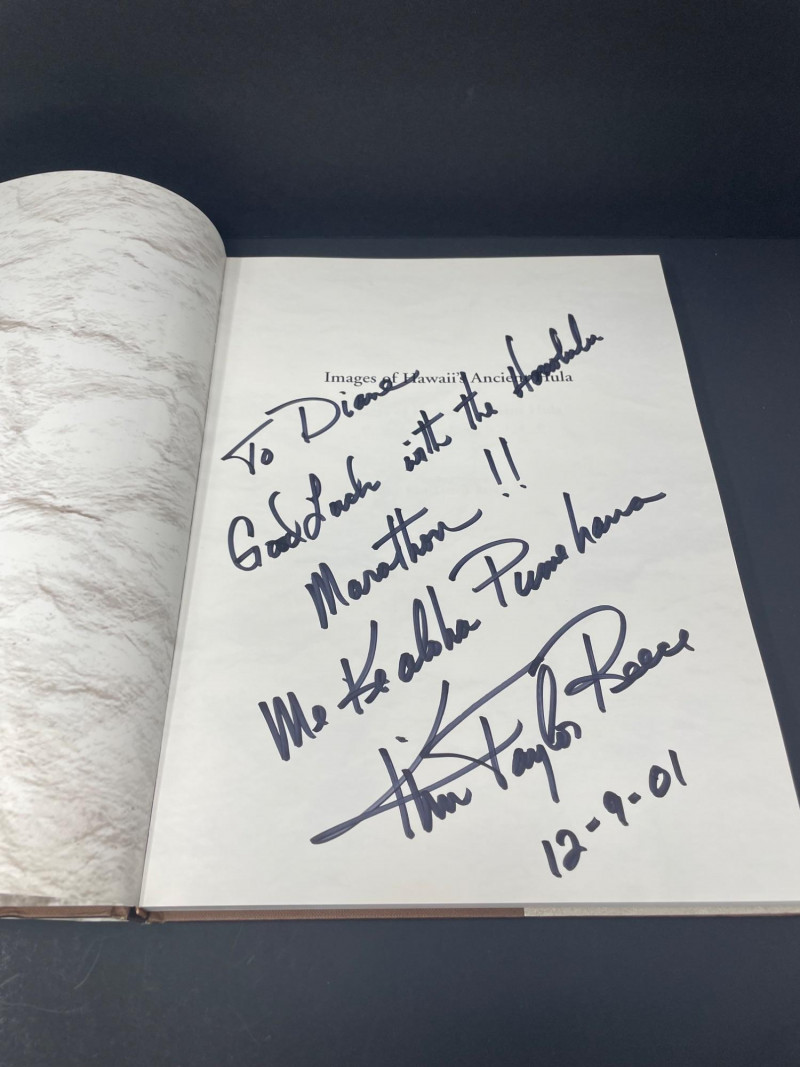 Images of Hawaii's Ancient Hula
To Diane
Good Luck with the Honolulu
Marathon !!
Me Ke aloha Pumehana
Kim Taylor Reece
12-9-01